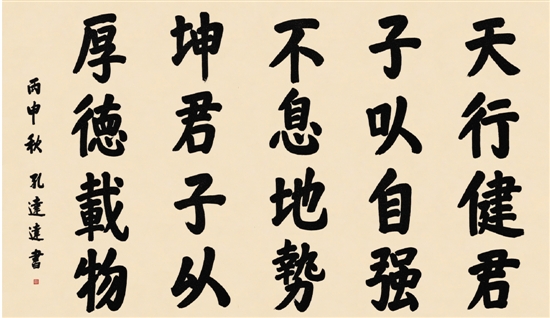 天行健君
子以自强
不息地勢
坤君子以
厚德載物
丙申秋 孔達達書